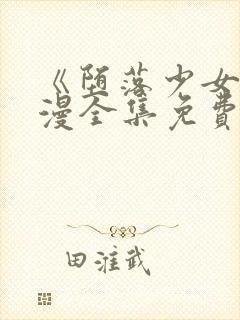 《堕落少女
漫全集免费
田淮武